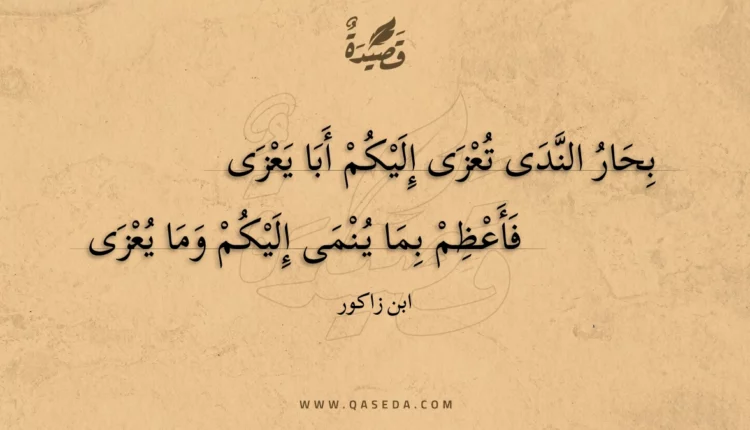 قَصِيْدَةٌ
بِحَارُ النَّدَى تُعْزَى إِلَيْكُمْ أَبَا يَعْزَى
فَأَعْظِمْ بِمَا يُنْمَى إِلَيْكُمْ وَمَا يُعْزَى
ابن زاكور
WWW.QASEDA.COM